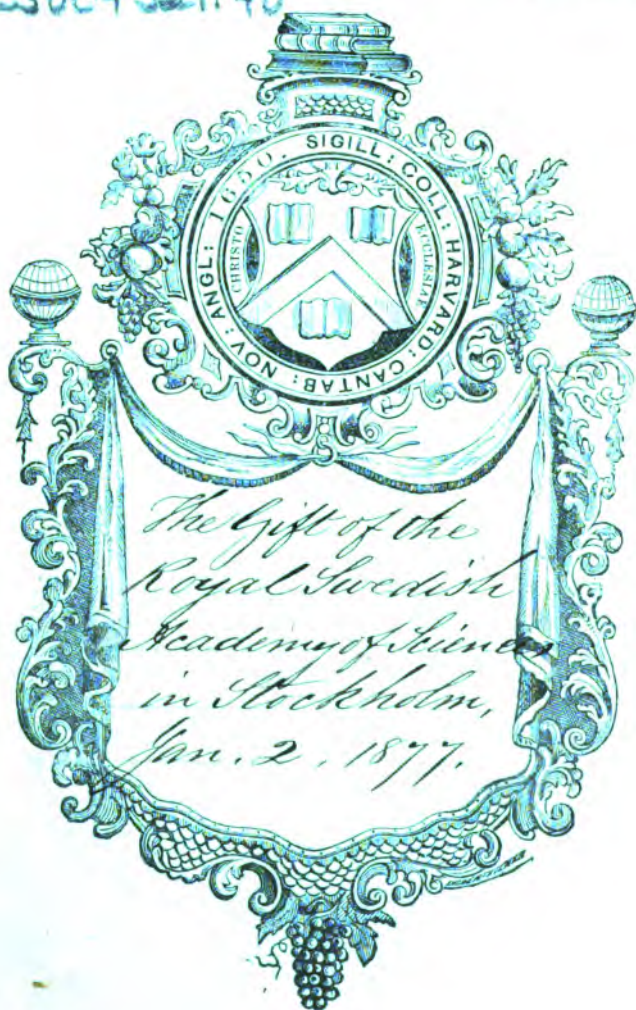 SIGILL: COLL: HARVARD: CANTAB: NOV: ANGL: 1650.
CHRISTO
ET
ECCLESIÆ
The Gift of the
Royal Swedish
Academy of Sciences
in Stockholm,
Jan. 2, 1877.